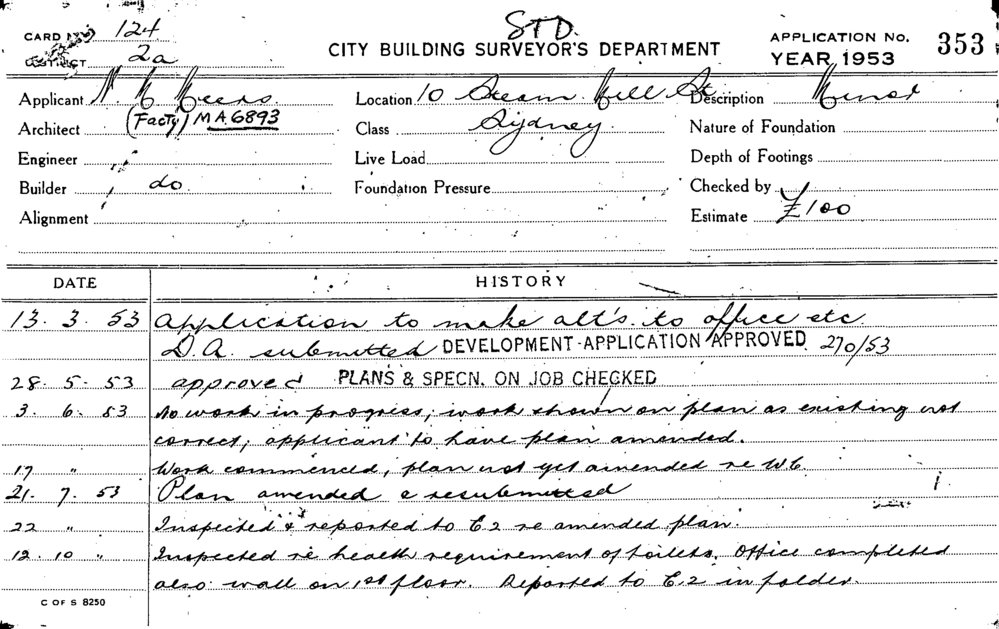 STD.
CARD No. 124
CITY BUILDING SURVEYOR'S DEPARTMENT
APPLICATION No. 353
DISTRICT 2a
YEAR 1953
Applicant
Location 10 Steam Mill St
Description Minor
Architect (Facty) MA6893
Class Sydney
Nature of Foundation
Engineer
Live Load
Depth of Footings
Builder do
Foundation Pressure
Checked by
Alignment
Estimate £100
DATE HISTORY
13. 3. 53 Application to make alt's. to office etc.
D.A. submitted DEVELOPMENT APPLICATION APPROVED. 270/53
28. 5. 53 approved PLANS & SPECN. ON JOB CHECKED
3. 6. 53 No work in progress, work shown on plan as existing not
correct, applicant to have plan amended.
17 " Work commenced, plan not yet amended re W.C.
21. 7. 53 Plan amended & resubmitted
22 " Inspected & reported to E2 re amended plan.
12. 10 " Inspected re health requirement of toilets. Office completed
also wall on 1st floor. Reported to E.2 in folder.
C OF S 8250